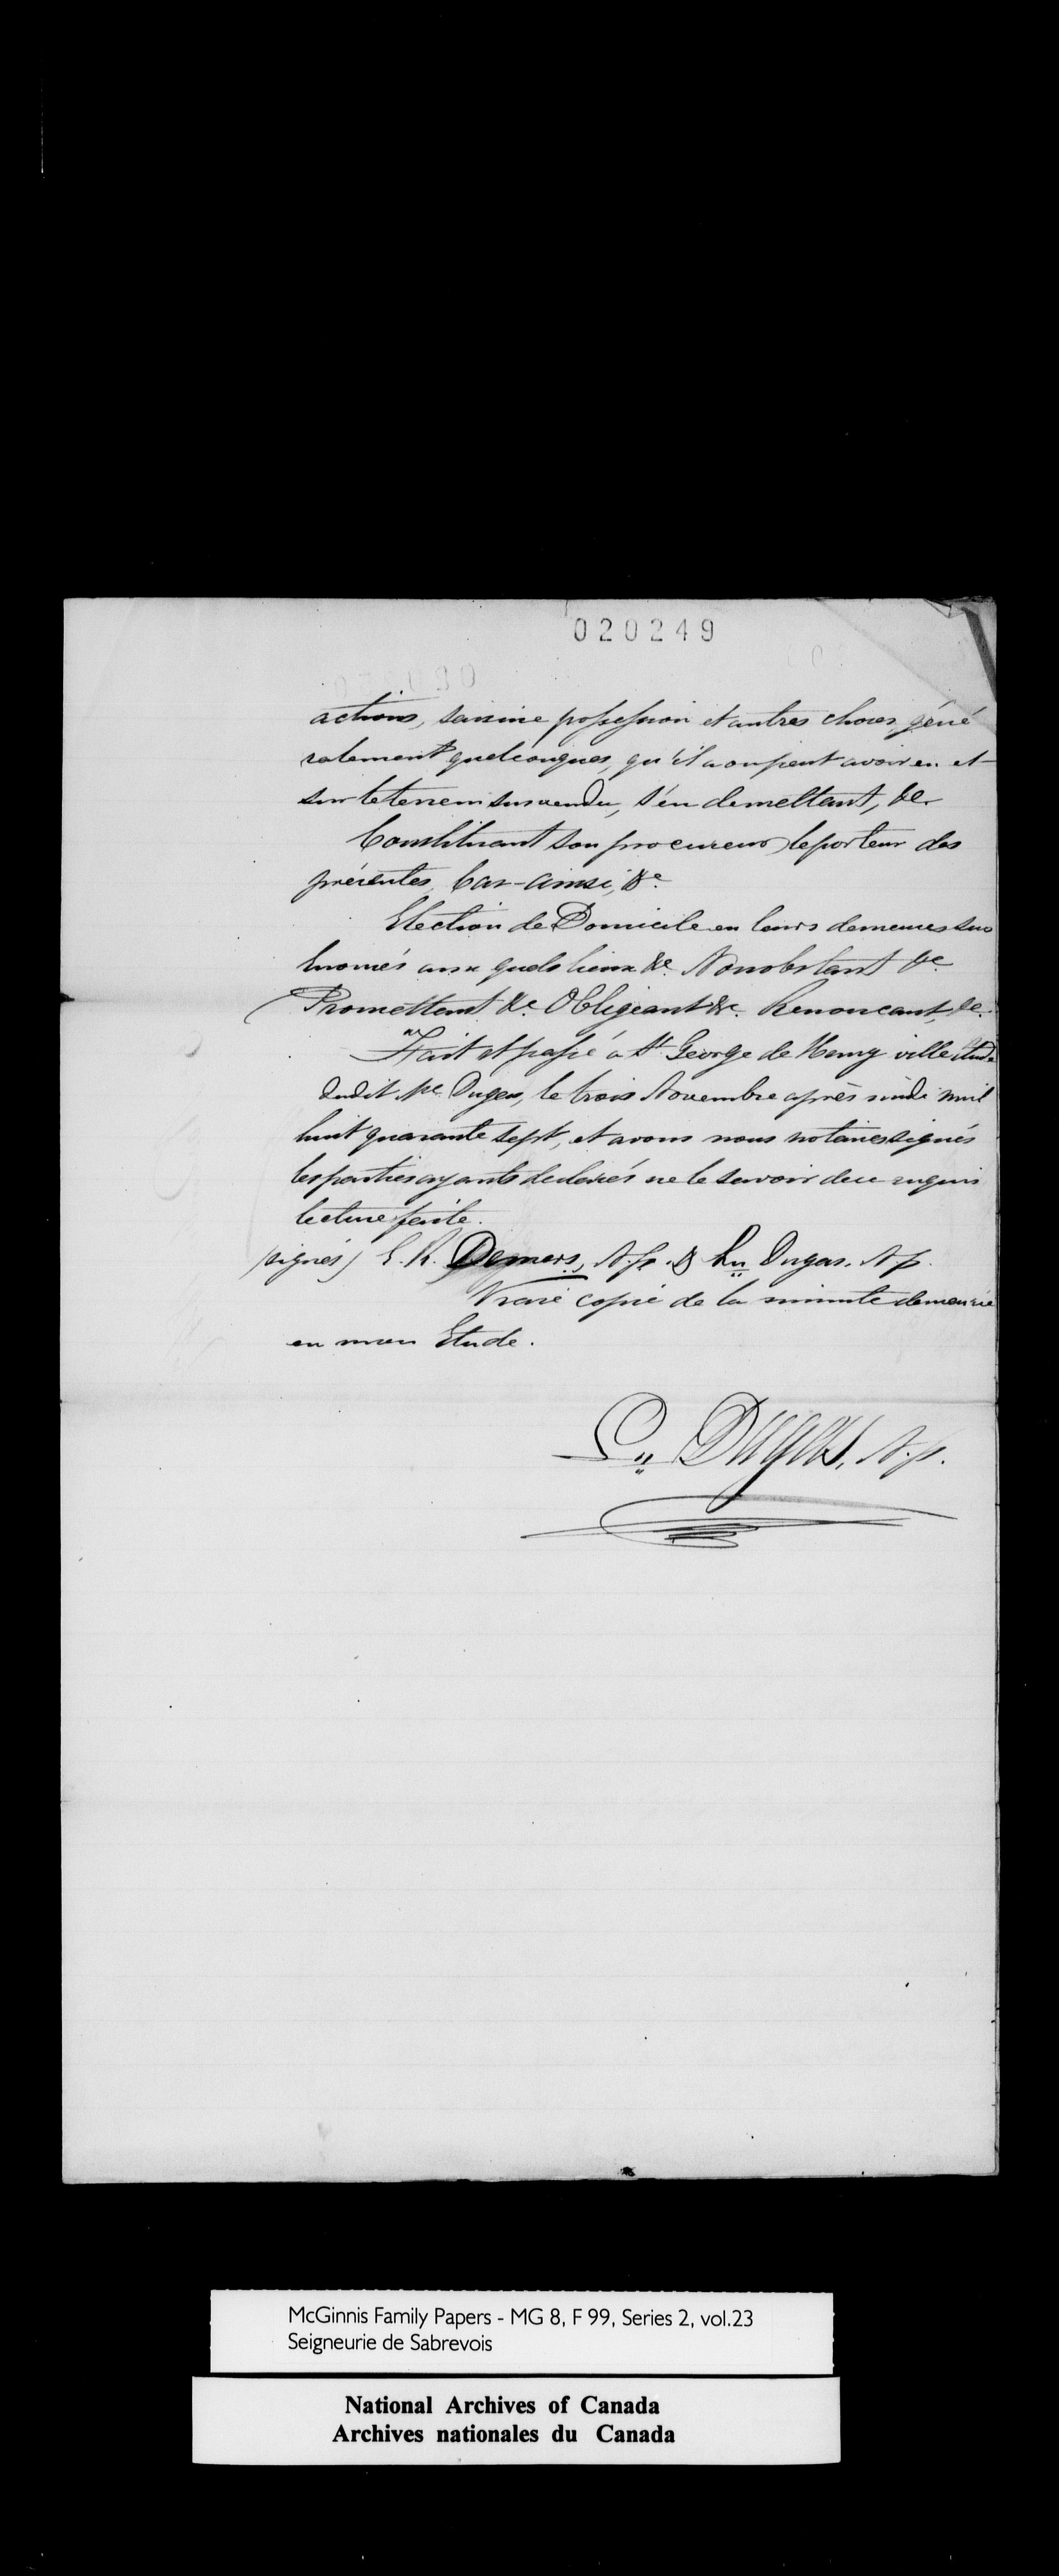 020249
actions, saisine possession et autres choses géné
ralement quelconques, qu'il a ou peut avoir en et
sur le terrein sus vendu, s'en demettant, &c
Constituant son procureur le porteur des
présentes, Car-ainsi, &c.
Election de Domicile en leurs demeures sus
només aux quels lieux &c. Nonobstant &c
Promettant &c. Obligeant &c. Renoncant, &c.
Fait et passé à St. George de Henry ville étude
dudit Me Dugas, le trois Novembre après midi mil
huit quarante sept, et avons nous notaires signés
les parties ayants declarés ne le savoir de ce enquis
lecture faite.
(signés) E. R. Demers, N.p. & Ln Dugas. N p.
Vraie copie de la minute demeurée
en mon Etude.
Ln Dugas, N.p.
McGinnis Family Papers - MG 8, F 99, Series 2, vol.23
Seigneurie de Sabrevois
National Archives of Canada
Archives nationales du Canada